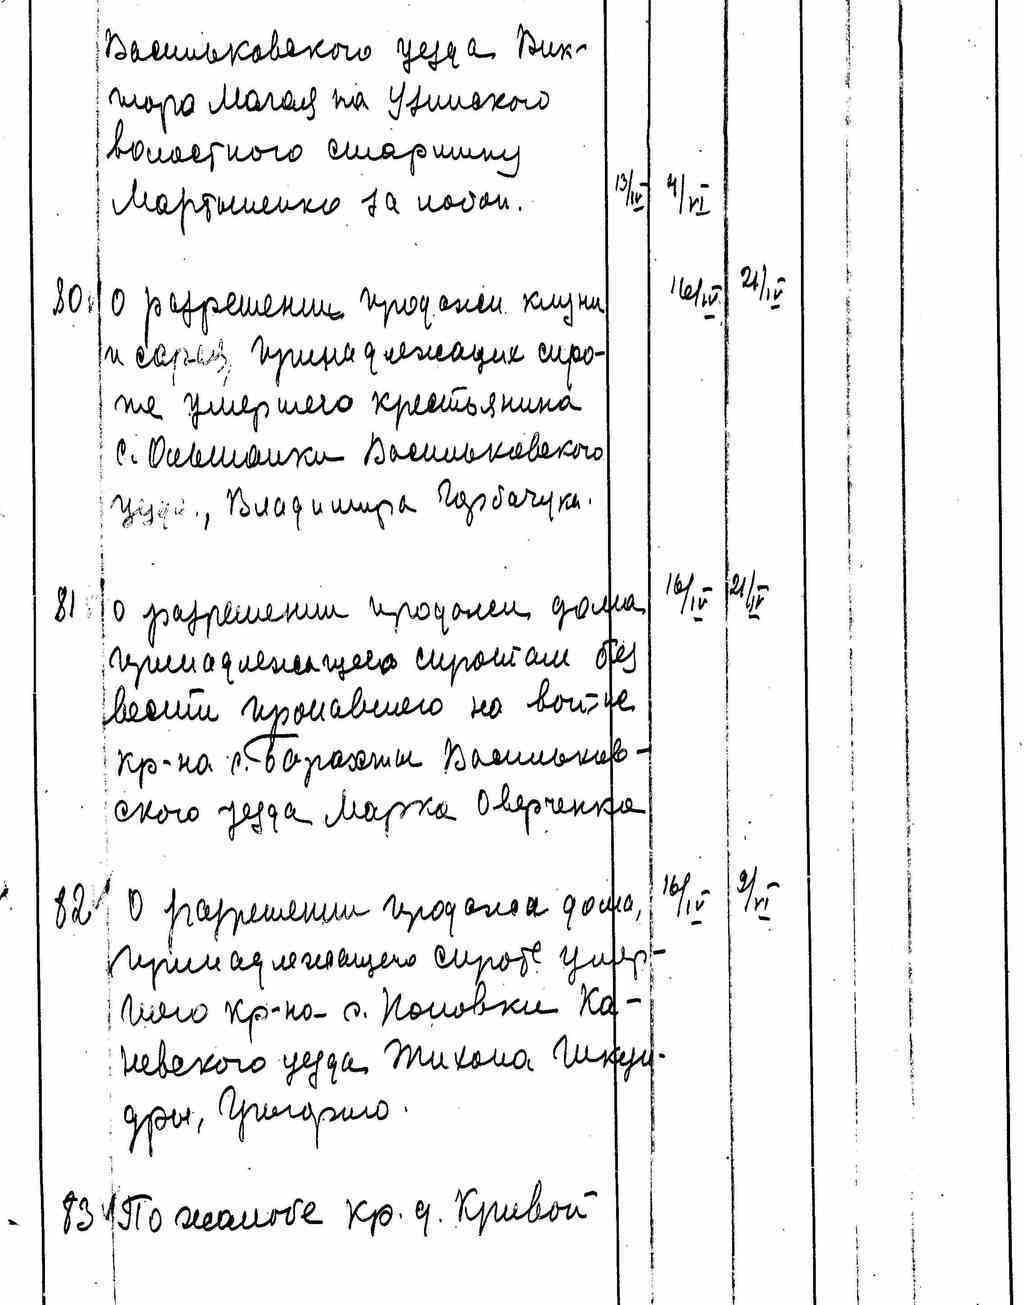 Васильковского уезда Вик-
тора Магая на Узинского
волостного старшину
Мартыненко за побои. 13/IV 4/VI
80. О разрешении продажи клуни 16/IV 21/IV
и сарая, принадлежащих сиро-
те умершего крестьянина
с. Ольшанки Васильковского
уезда, Владимира Горбачука.
81 О разрешении продажи дома 16/IV 21/IV
принадлежащего сиротам без
вести пропавшего на войне
кр-на с. Барахты Васильков-
ского уезда Марка Оверченка
82 О разрешении продажи дома, 16/IV 9/VI
принадлежащего сироте умер-
шего кр-на с. Поповки Ка-
невского уезда Тихона Шкун-
дры, Григорию.
83 По жалобе кр. д. Кривой